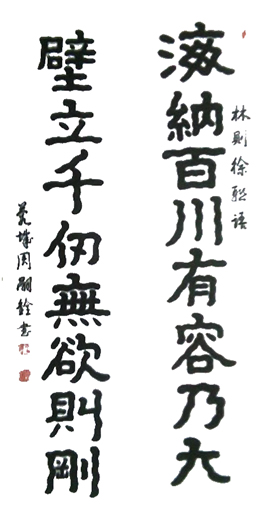 林則徐聯語
海納百川有容乃大
壁立千仞無欲則剛
城周嗣書